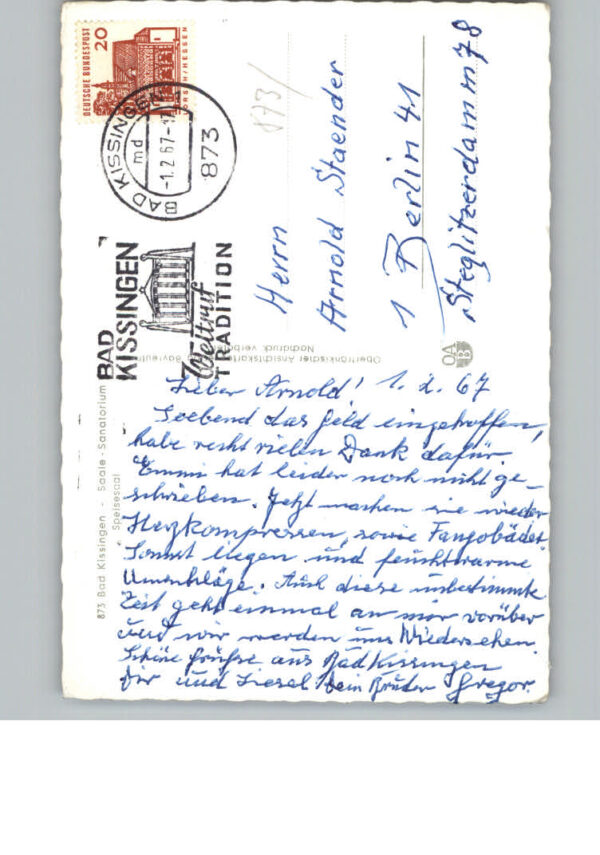 DEUTSCHE BUNDESPOST
20
LORSCH/HESSEN
BAD KISSINGEN
md
-1.2.67-
873
BAD
KISSINGEN
Weltruf
TRADITION
873/
Herrn
Arnold Staender
1 Berlin 41
Steglitzerdamm 78
Oberfränkischer Ansichtskarten
Nachdruck verboten
OA
B
873 Bad Kissingen - Saale-Sanatorium
Speisesaal
Lieber Arnold! 1.2.67
Soebend das Geld eingetroffen,
habe recht vielen Dank dafür.
Emmi hat leider noch nicht ge-
schrieben. Jetzt machen sie wieder
Herzkompressen, sowie Fangobäder
Sonnst liegen und feuchtwarme
Umschläge. Auch diese unbestimmte
Zeit geht einmal an mir vorüber
und wir werden uns Wiedersehen.
Schöne Grüße aus Bad Kissingen
Dir und Liesel. Dein Bruder Gregor.